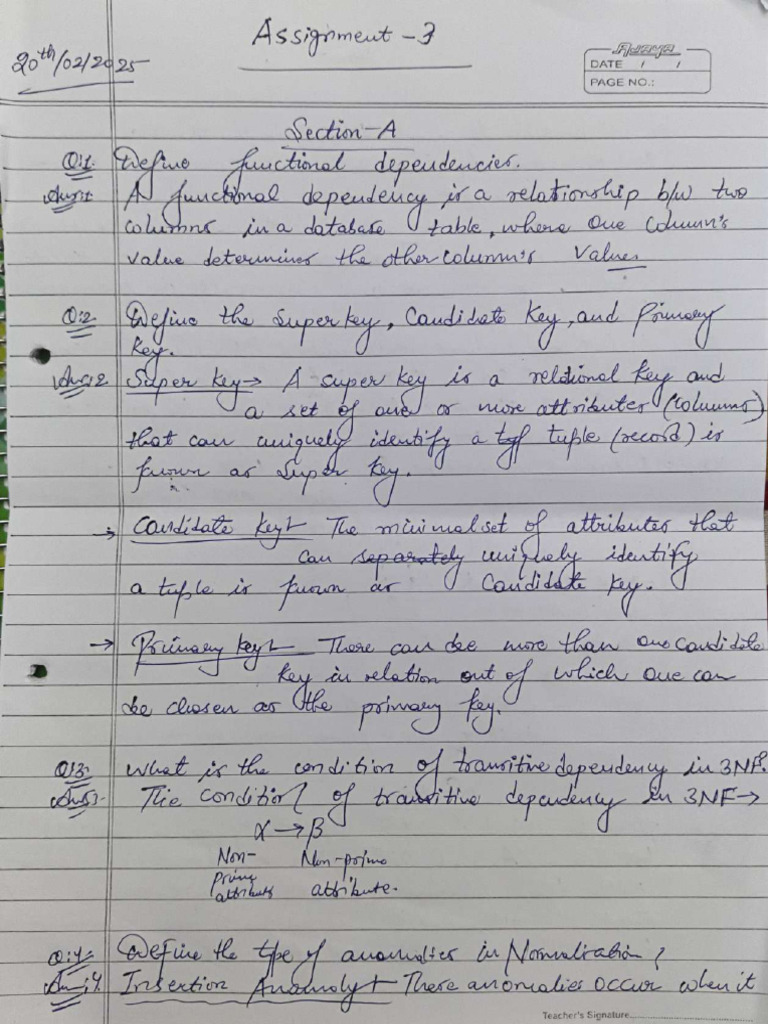 Assignment - 3
20th/02/2025
Ajanta
DATE / /
PAGE NO.:
Section-A
Q:1. Define functional dependencies.
Ans:1 A functional dependency is a relationship b/w two
columns in a database table, where one column's
value determines the other column's values
Q:2. Define the Super key, Candidate Key, and Primary
Key.
Ans:2. Super key → A super key is a relational key and
a set of one or more attributes (columns)
that can uniquely identify a tuple (record) is
known as Super key.
→ Candidate key :- The minimal set of attributes that
can separately uniquely identify
a tuple is known as Candidate key.
→ Primary key :- There can be more than one candidate
key in relation out of which one can
be chosen as the primary key.
Q:3. What is the condition of transitive dependency in 3NF?
Ans:3. The condition of transitive dependency in 3NF →
α → β
Non- Non-prime
Prime attribute.
attribute
Q:4. Define the type of anomalies in Normalization?
Ans:4. Insertion Anamoly :- These anomalies occur when it
Teacher's Signature